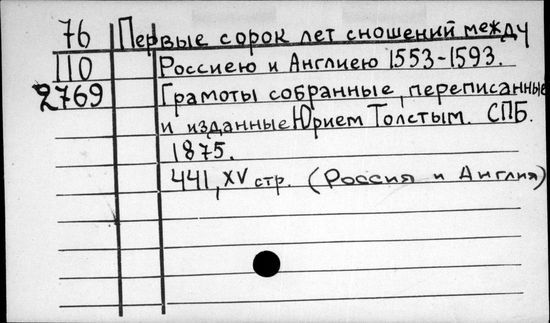 76 Первые сорок лет сношений между
110 Россиею и Англиею 1553-1593.
2769 Грамоты собранные, переписанные
и изданные Юрием Толстым. СПБ.
1875.
441, XV стр. (Россия и Англия)